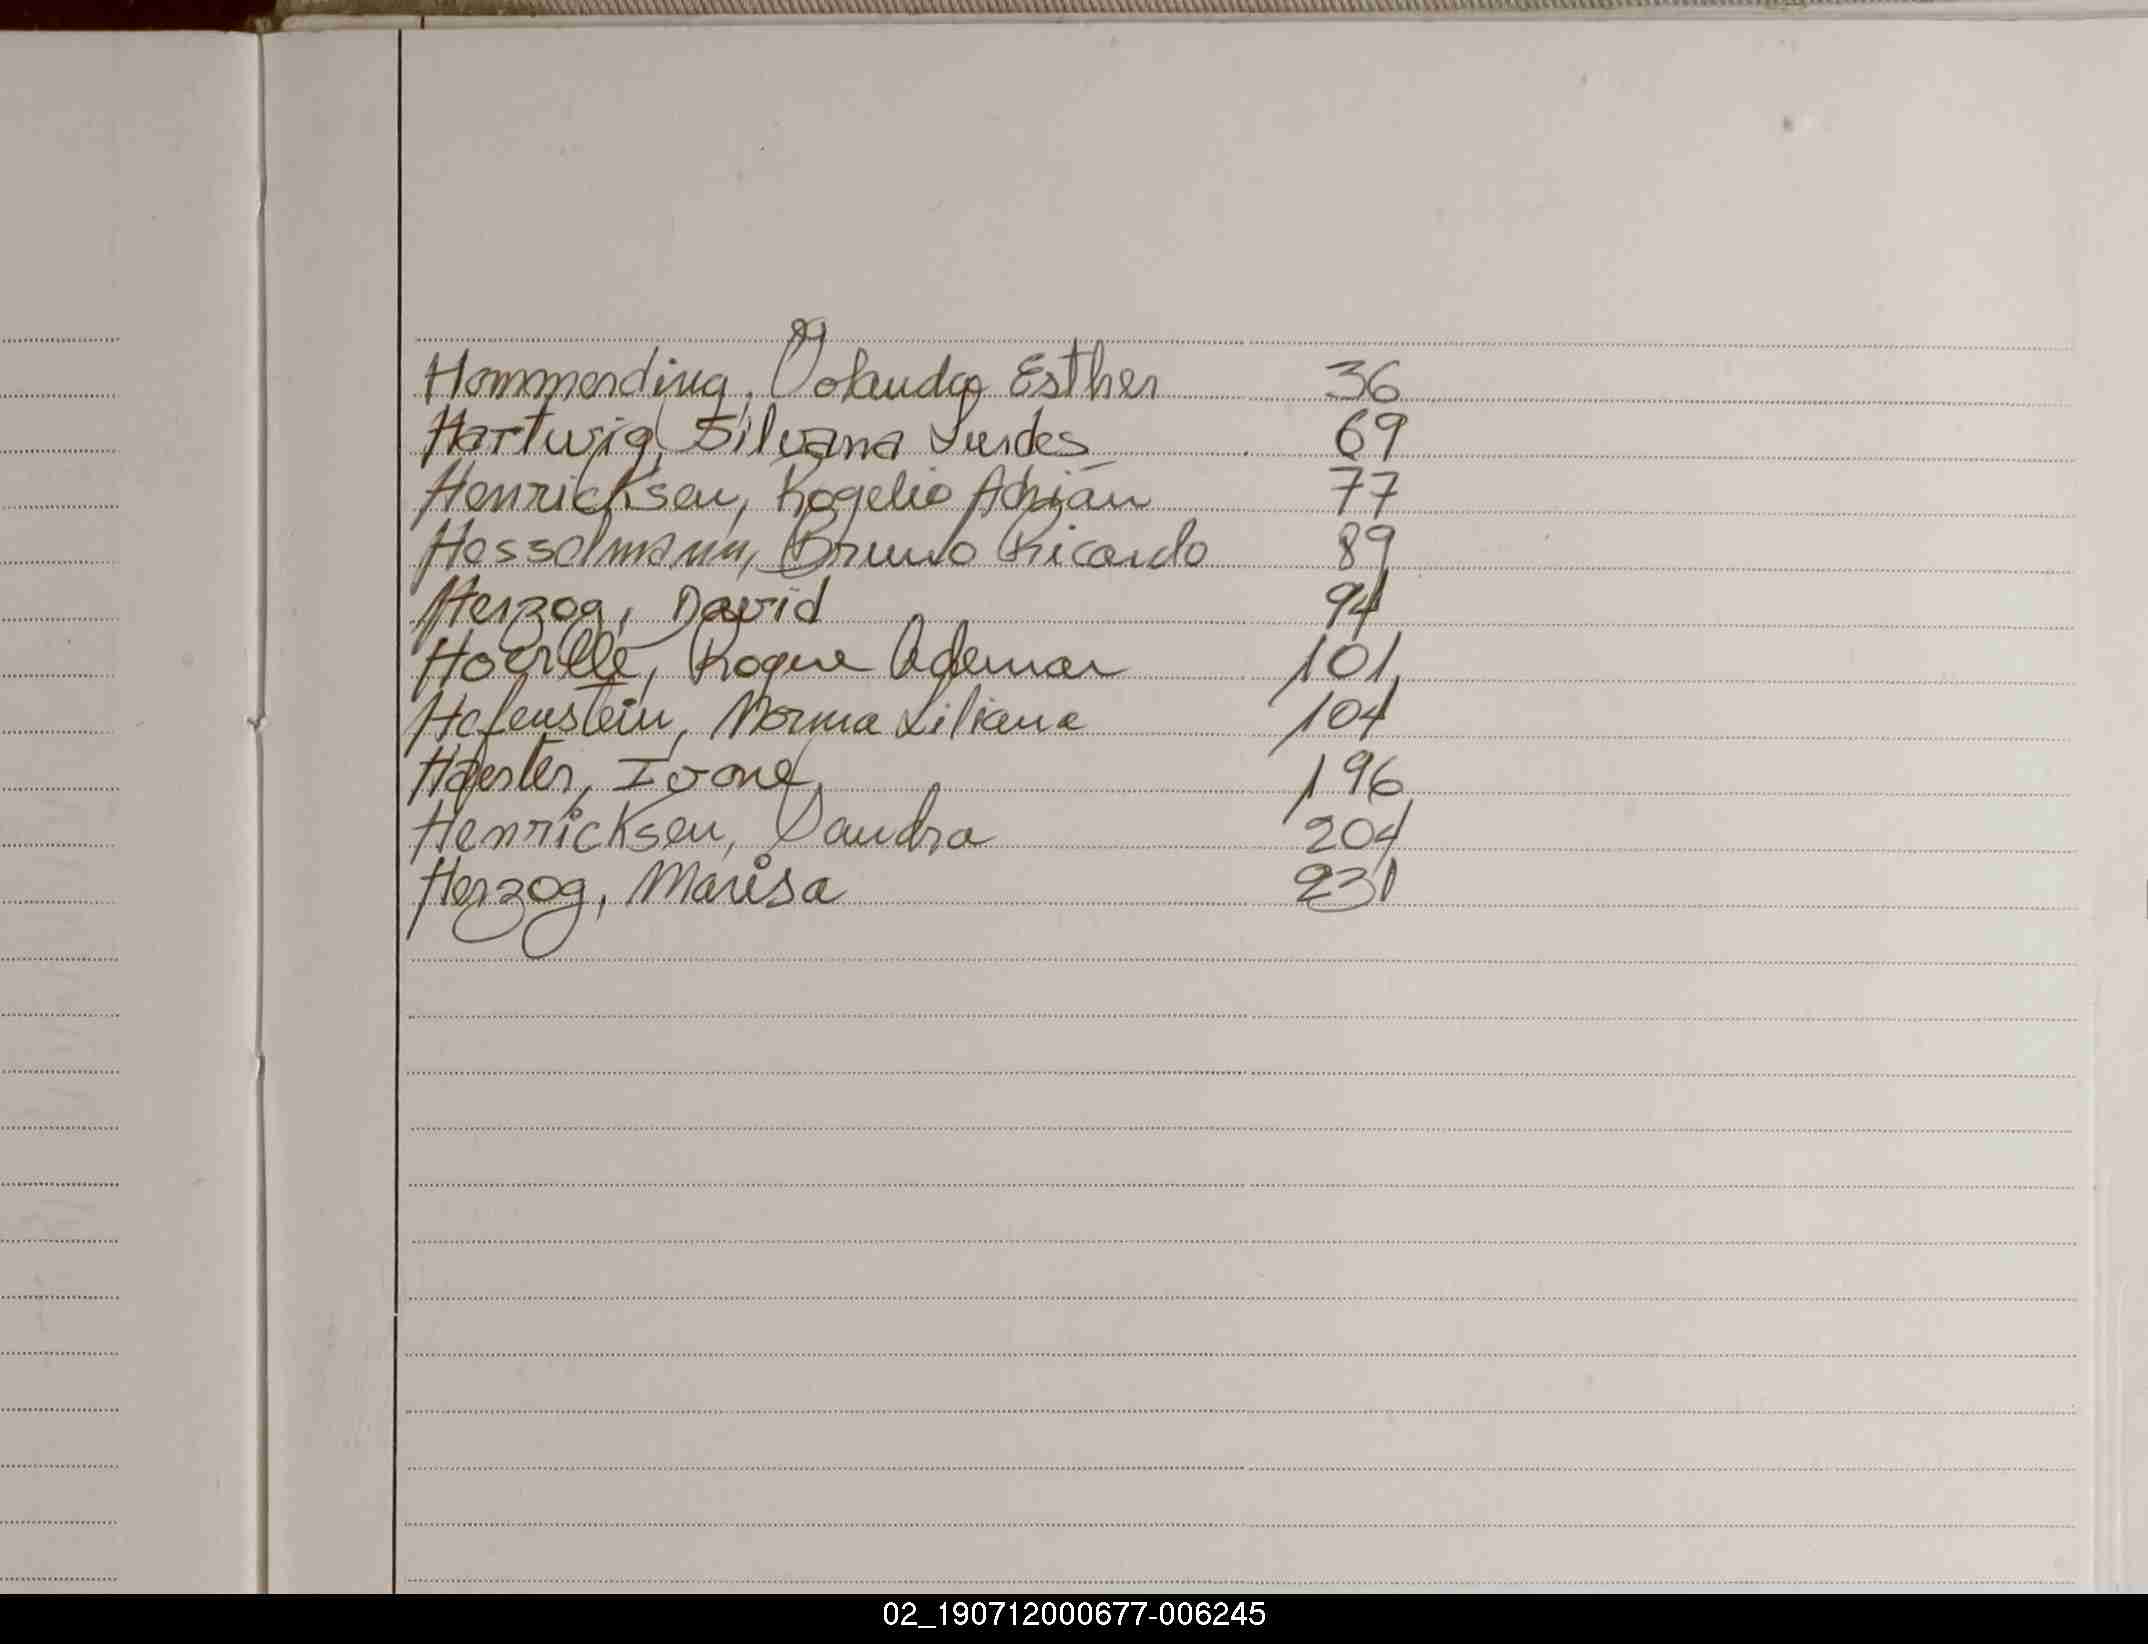 Hommerding, Yolanda Esther 36
Hartwig, Silvana Lurdes 69
Henricksen, Rogelio Adrián 77
Hesselmann, Bruno Ricardo 89
Herzog, David 94
Hoerlle, Roque Ademar 101
Hefenstein, Norma Liliana 104
Ivone 196
Henricksen, Sandra 204
Herzog, Marisa 231
02_190712000677-006245